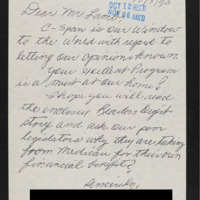 OCT 12 REC'D
NOV 06 ANS'D
Dear Mr Lamb:
C-Span is our window
to the World with regard to
letting our opinions known.
Your excellent Program
is a must at our home!
I hope you will read
the enclosed Readers Digest
story and ask our poor
legislators why they are taking
from Medicare for their own
financial benefit?
Sincerely,